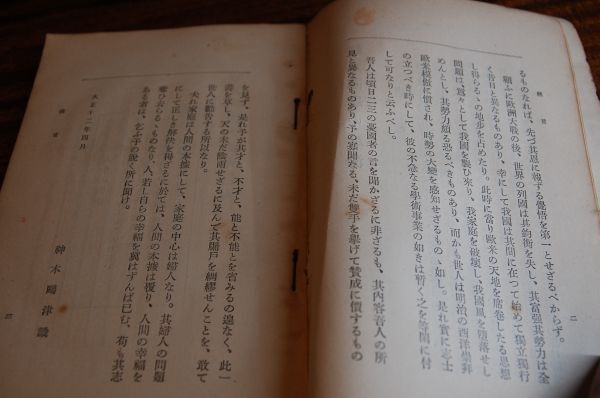 緒言
二
るものなれば、先づ其恩に報ずる覺悟を第一とせざるべからず。
顧ふに歐洲大戰の後、世界の列國は其鈞衡を失し、其富強其勢力は全
く昔日と異なるものあり、幸にして我國は其間に在つて始めて獨立獨行
し得らるゝの地歩を占めたり。此時に當り歐米の天地を席卷したる思想
問題は、翕々として我國を襲ひ來り、我家庭を破壞し、我國風を墮落せし
めんとし、其勢力頗る恐るべきものあり、而かも世人は明治の西洋崇拜
歐米模倣に慣れ、時勢の大變を感知せざるものゝ如し。是れ實に志士
の立つべき時にして、彼の不急なる學術事業の如きは暫く之を等閑に付
して可なりと云ふべし。
吾人は頃日二三の憂國者の言を聞かざるに非ざるも、其内容吾人の所
見と異なるものあり、予の寡聞なる、未だ雙手を擧げて賛成に價するもの
を見ず、是れ予が其才と、不才と、能と不能とを省みるの遑なく、此一
書を草し、天の未だ陰雨せざるに及んで其牖戸を綢繆せんことを、敢て
世人に勸告する所以なり。
夫れ家庭は人間の本據にして、家庭の中心は婦人なり。其婦人の問題
にして正しき解決を得ざるに於ては、人間の本據は覆り、人間の幸福を
奪ひ去らるゝものなり、人、若し自らの幸福を冀はずんば已む、苟も其志
ある者は、乞ふ予の説く所に聞け。
大正十二年四月
神木鷗津識
緒言
三